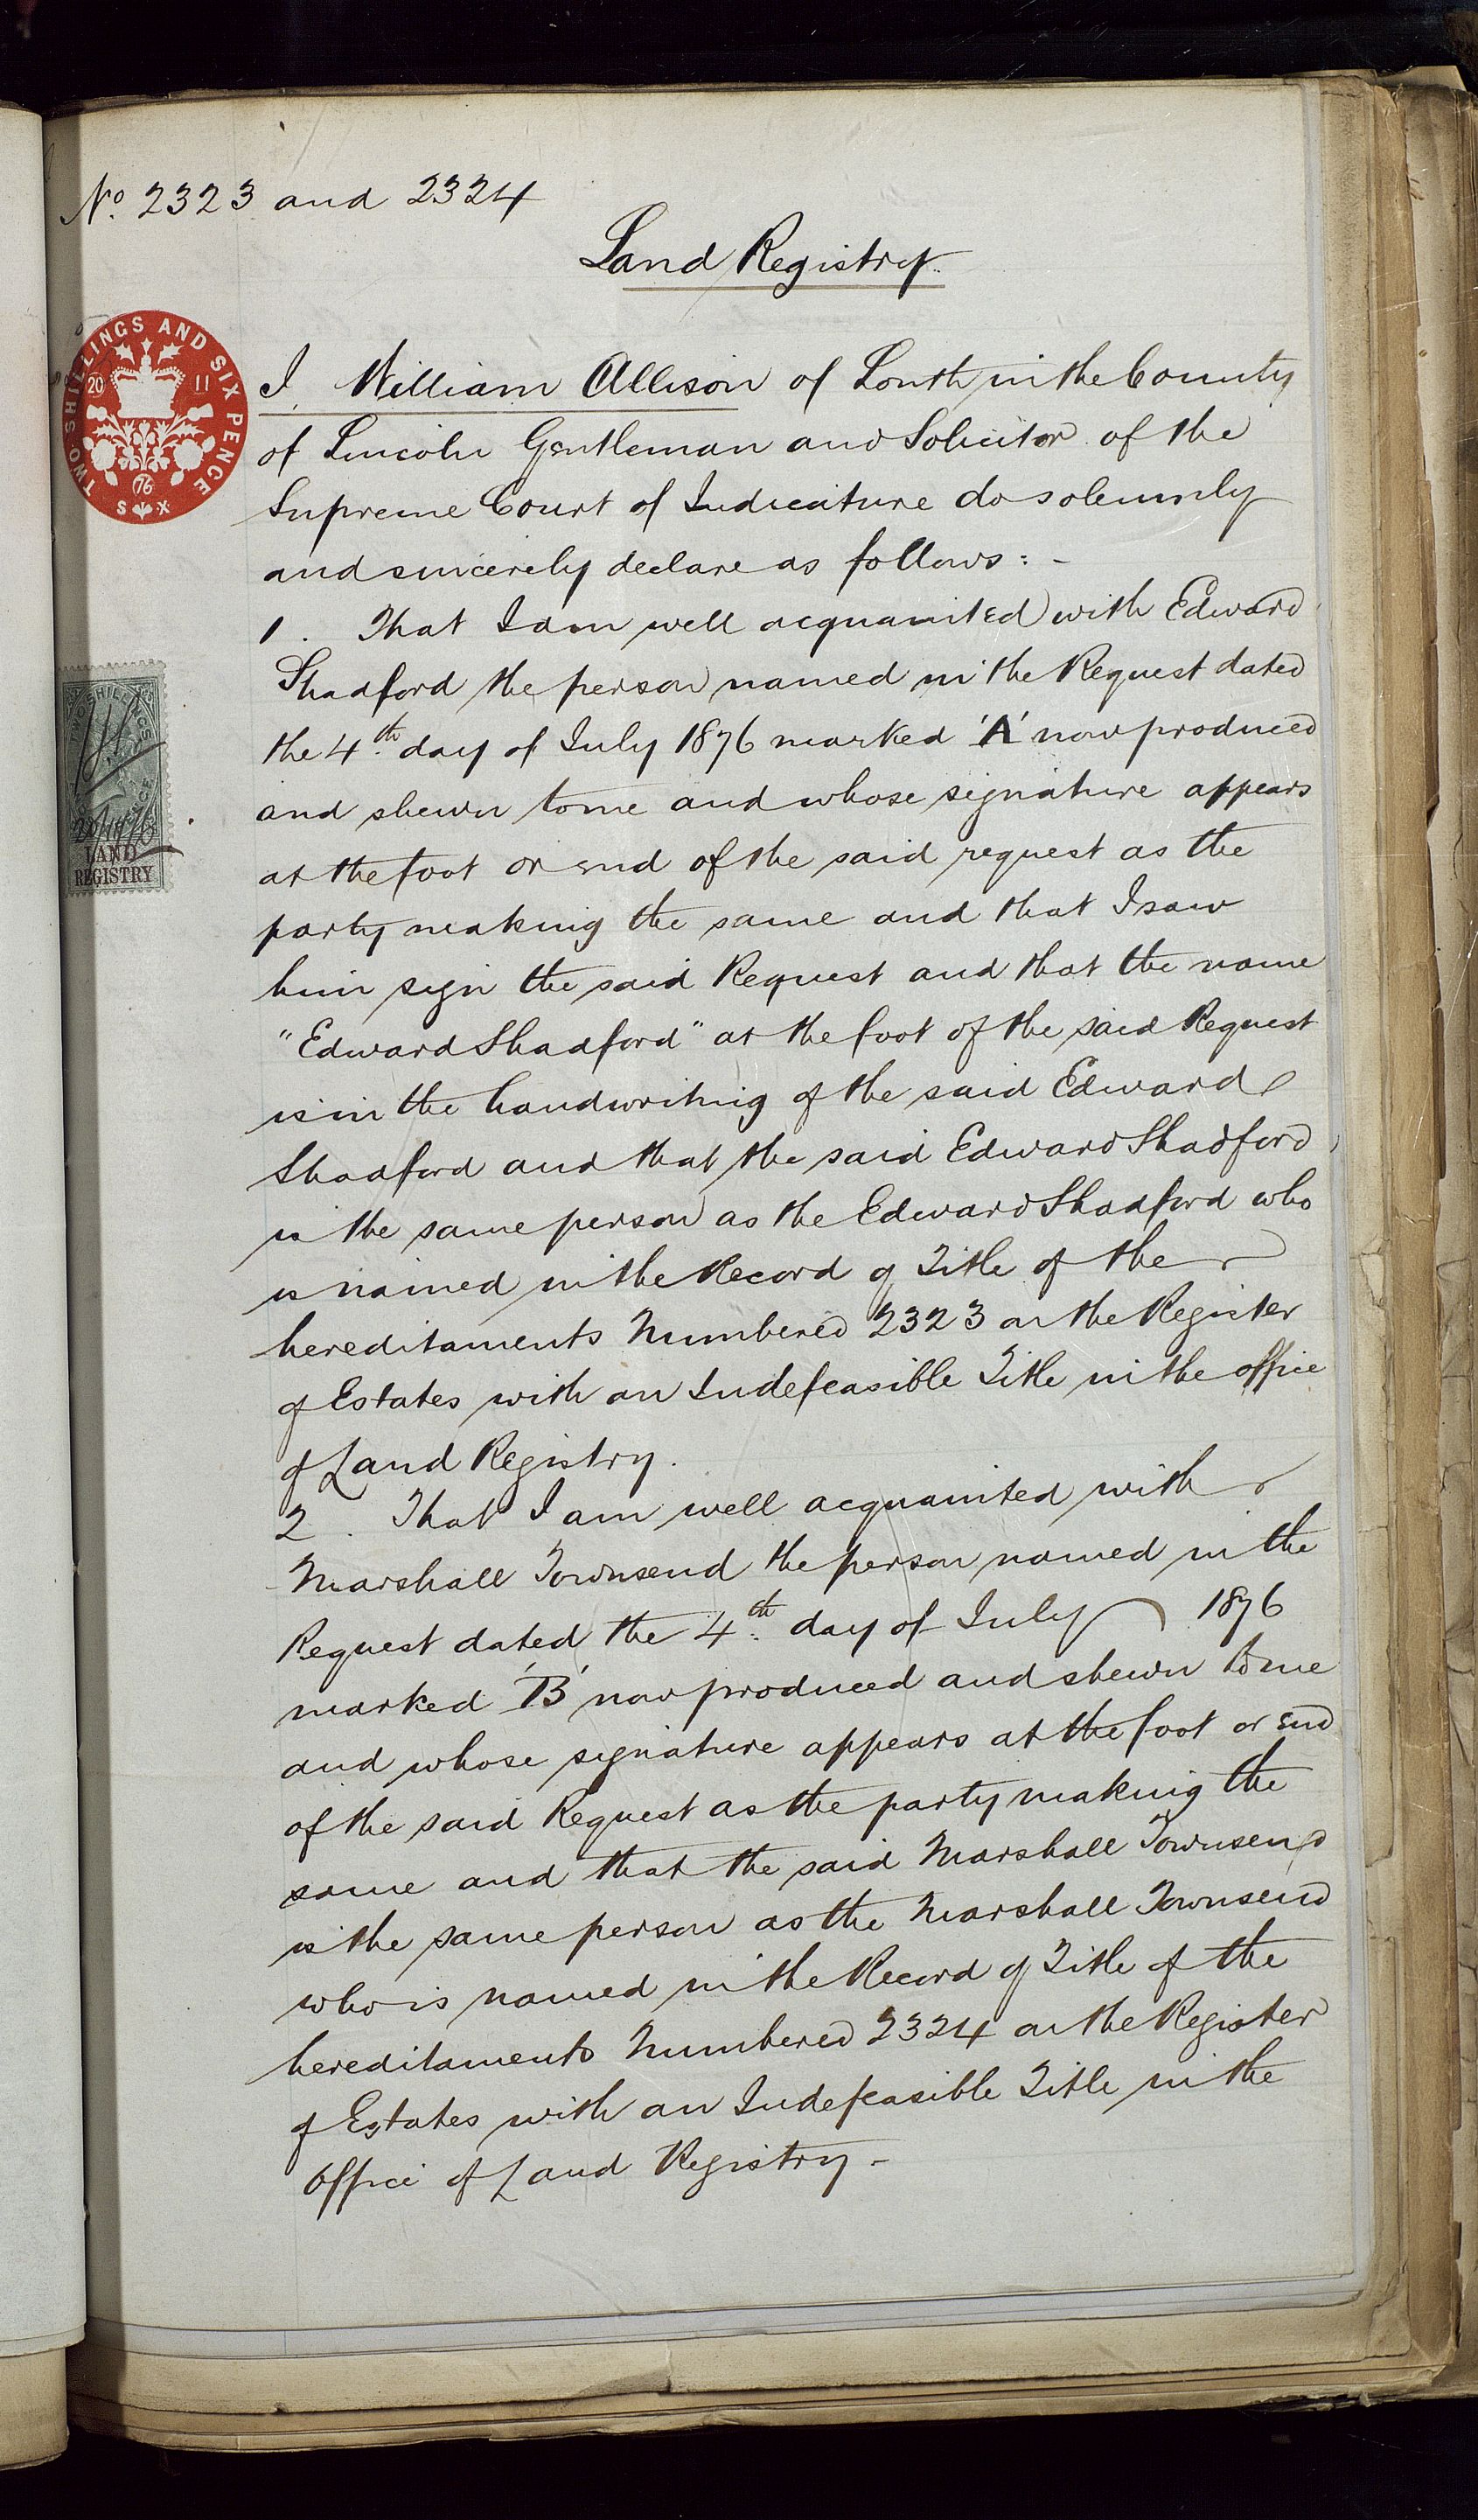 No. 2323 and 2324
Land Registry.
TWO SHILLINGS AND SIX PENCE
20 11
76
S X
I William Allison of Louth in the County
of Lincoln Gentleman and Solicitor of the
Supreme Court of Judicature do solemnly
and sincerely declare as follows: -
1. That I am well acquainted with Edward
Shadford the person named in the Request dated
the 4th day of July 1876 marked 'A' now produced
and shewn to me and whose signature appears
at the foot or end of the said request as the
LAND
REGISTRY
party making the same and that I saw
him sign the said Request and that the name
"Edward Shadford" at the foot of the said Request
is in the handwriting of the said Edward
Shadford and that the said Edward Shadford
is the same person as the Edward Shadford who
is named in the Record of Title of the
hereditaments Numbered 2323 on the Register
of Estates with an Indefeasible Title in the office
of Land Registry.
2. That I am well acquainted with
Marshall Townsend the person named in the
Request dated the 4th day of July 1876
marked 'B' now produced and shewn to me
and whose signature appears at the foot or end
of the said Request as the party making the
same and that the said Marshall Townsend
is the same person as the Marshall Townsend
who is named in the Record of Title of the
hereditaments Numbered 2324 on the Register
of Estates with an Indefeasible Title in the
Office of Land Registry -